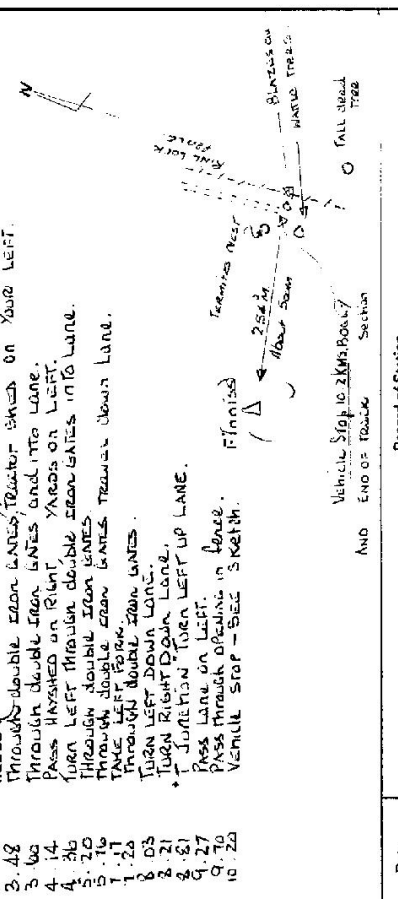 3.48 Through double iron GATES, TRACTOR SHED ON YOUR LEFT.
3.60 Through double Iron GATES and into Lane.
4.14 PASS HAYSHED on Right YARDS on LEFT.
4.36 TURN LEFT THROUGH double IRON GATES INTO Lane.
5.20 THROUGH double IRON GATES
5.76 Through double iron GATES TRAVEL down Lane.
7.17 TAKE LEFT FORK.
7.20 Through double IRON GATES.
8.03 TURN LEFT DOWN LANE.
8.21 TURN RIGHT DOWN LANE.
8.81 "T" JUNCTION TURN LEFT UP LANE.
9.27 PASS Lane on LEFT.
9.70 PASS through OPENING in fence.
10.20 VEHICLE STOP - SEE SKETCH.
N
RING LOCK
FENCE
TERMITES NEST
BLAZES ON
WATTLE TREES
254°M
About 500m
FINNISS
TALL dead
TREE
Vehicle Stop 10.2KMS.
AND END OF TRACK Section
Record of Station